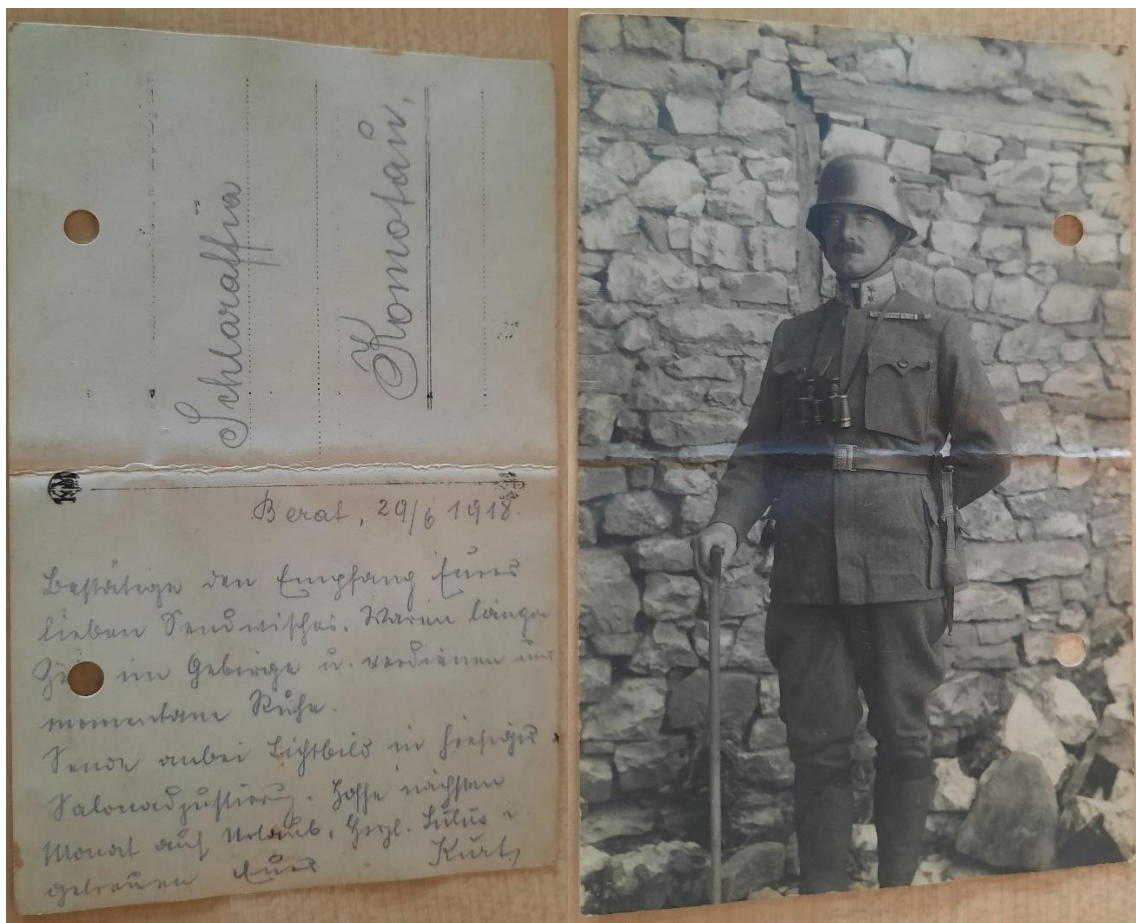 Schlaraffia
Komotau,
Berat, 29/6 1918.
Bestätige den Empfang Eures
lieben Sendwisches. Waren länger
im Gebirge u. verdienen uns
momentan Ruhe.
Sende anbei Lichtbild in hiesiger
Salonadjustierung. Hoffe nächsten
Monat auf Urlaub. Herzl. Lulus
getreuen Euer Kurt